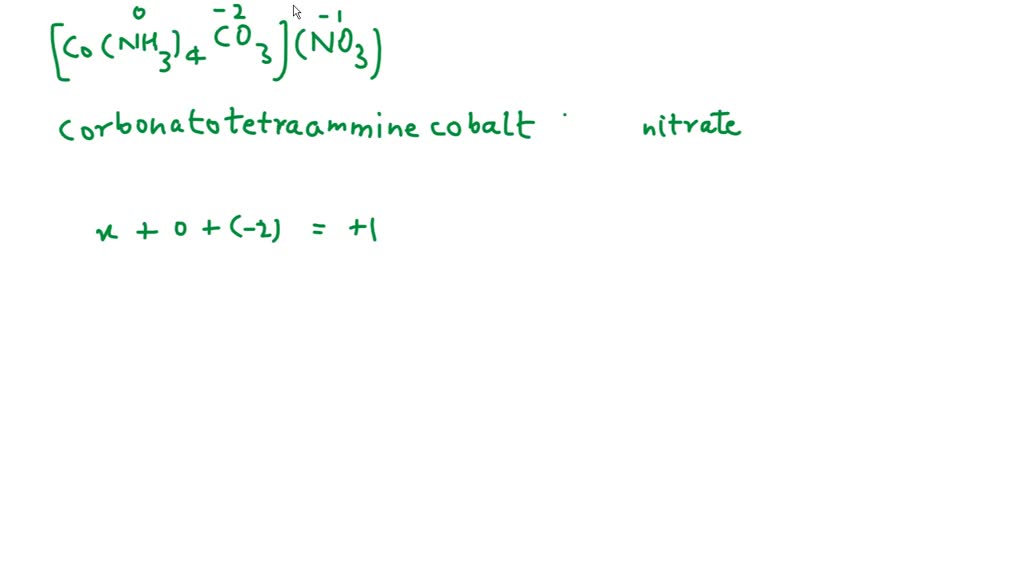 0 -2 -1
[Co(NH3)4 CO3](NO3)
corbonatotetraammine cobalt nitrate
x + 0 + (-2) = +1